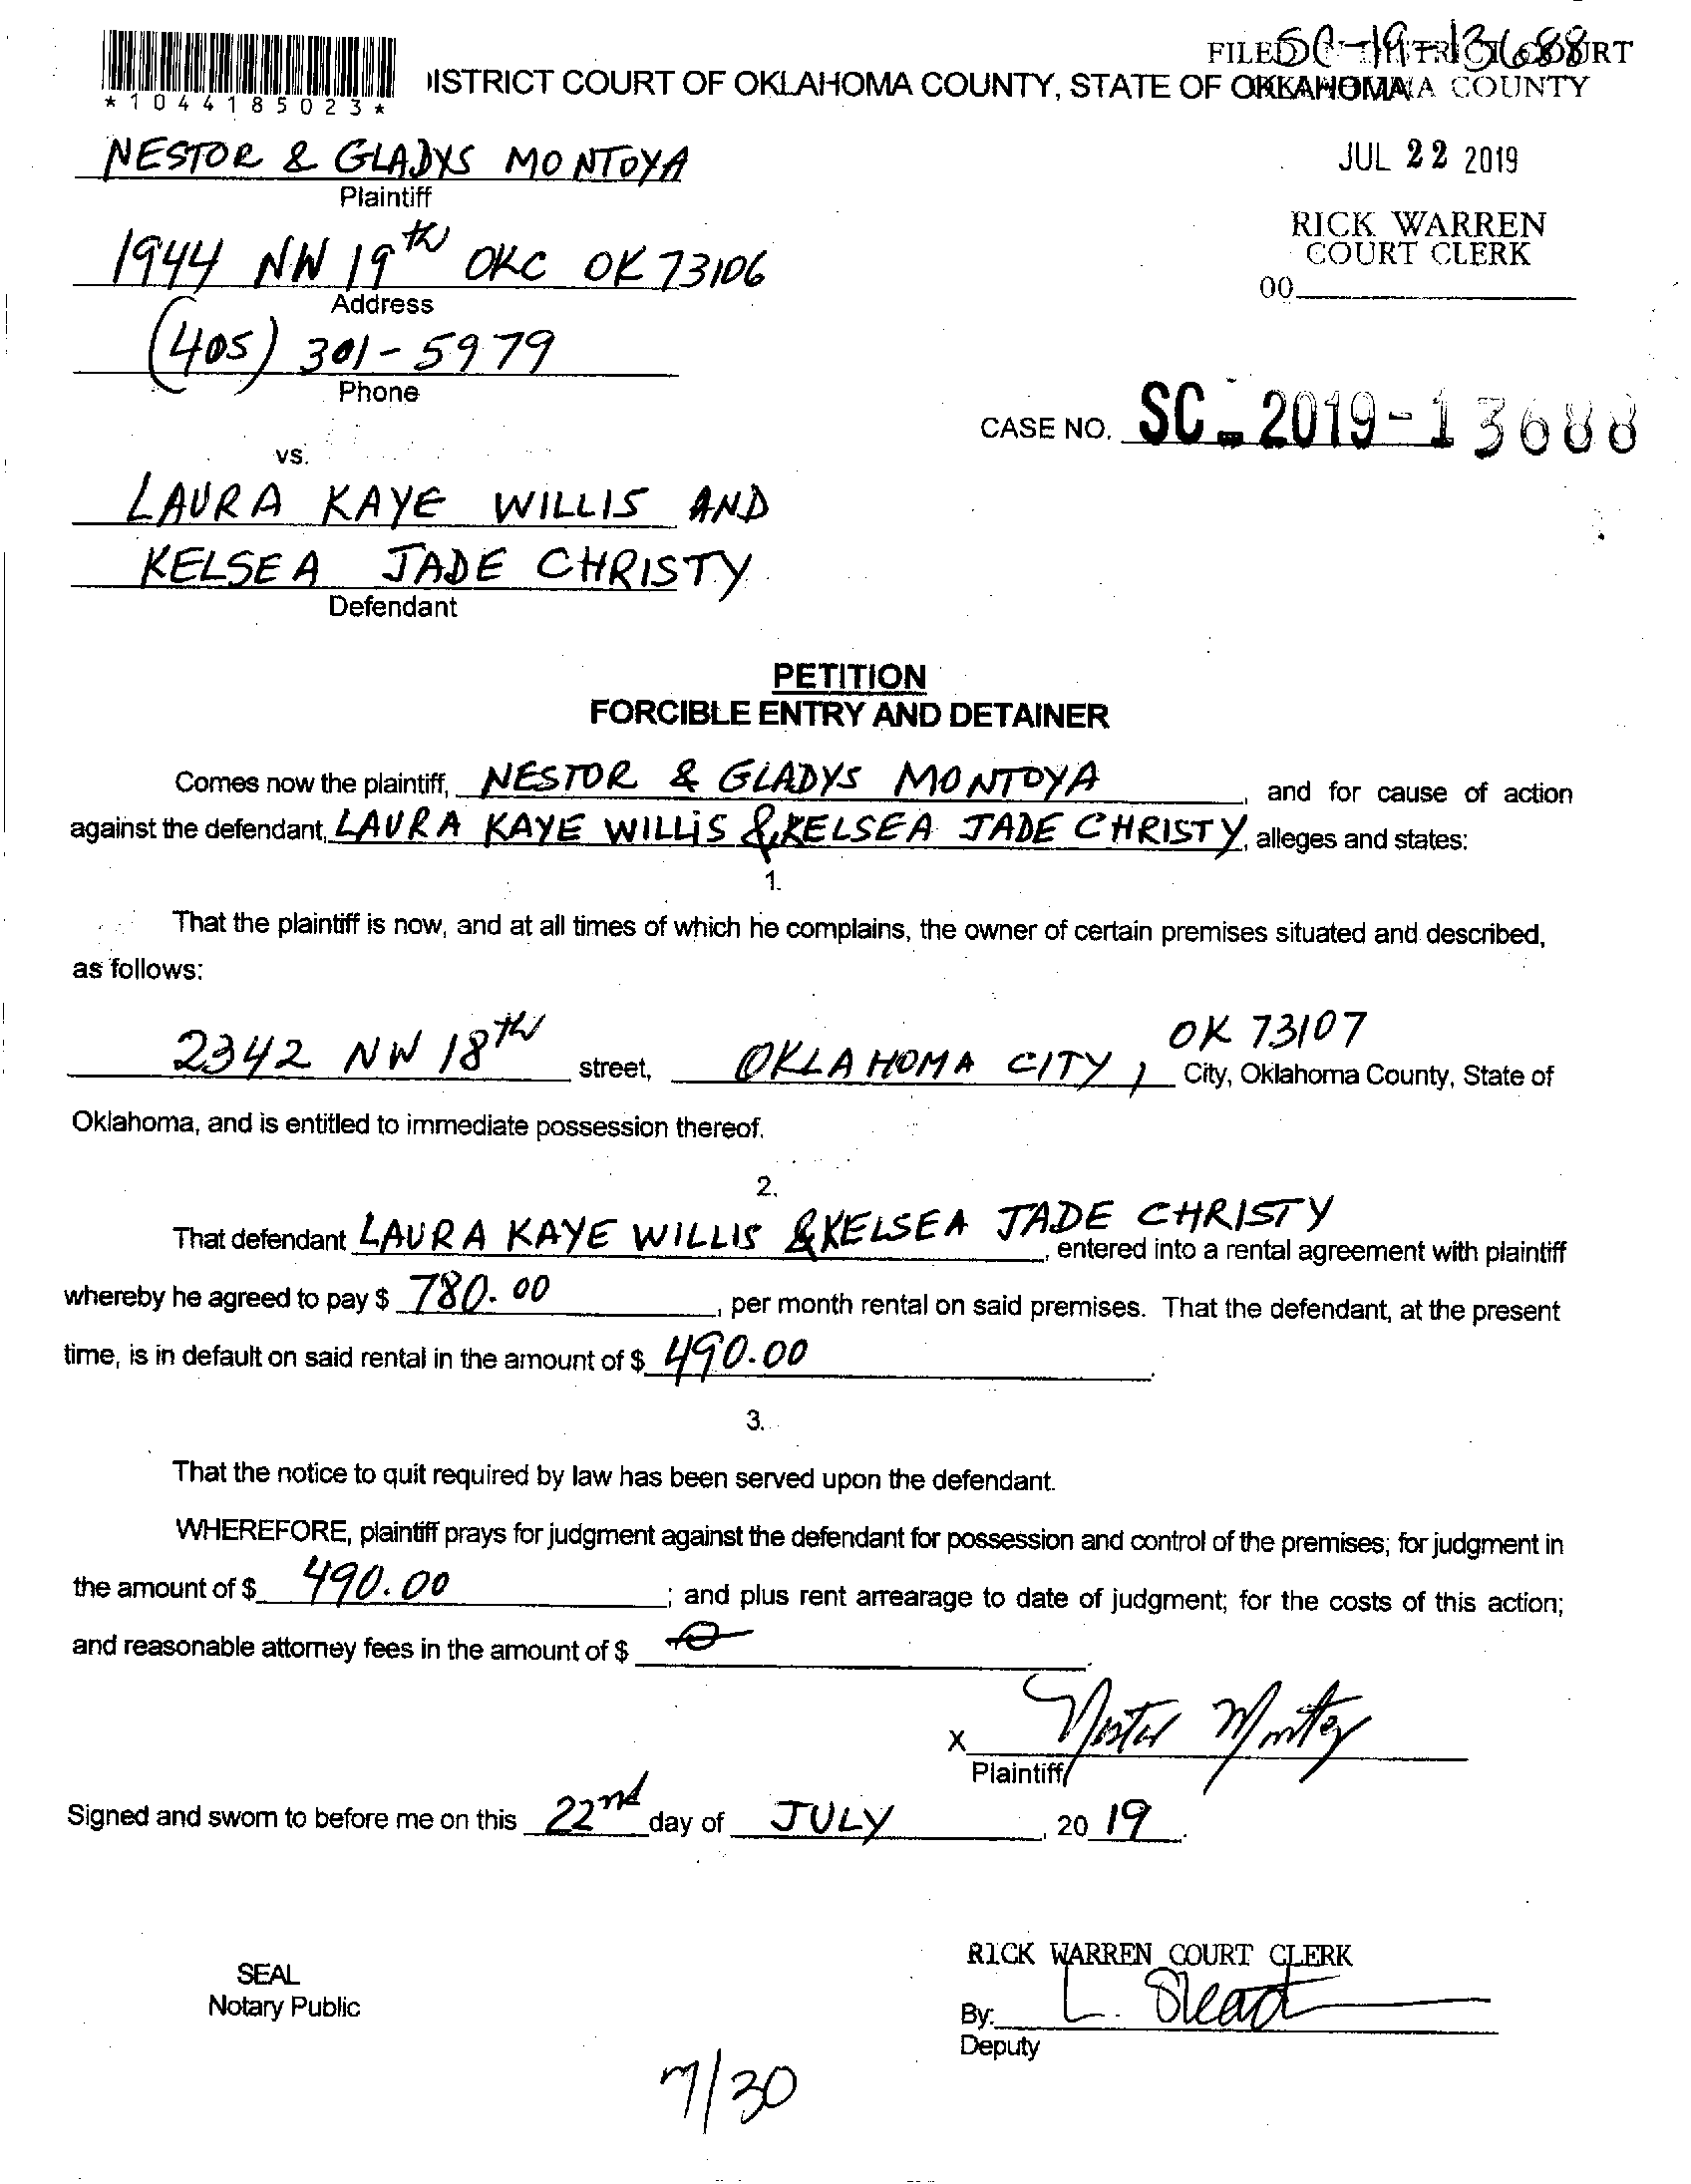 SC-19-13688
FILED IN DISTRICT COURT
*1044185023*
DISTRICT COURT OF OKLAHOMA COUNTY, STATE OF OKLAHOMA
OKLAHOMA COUNTY
NESTOR & GLADYS MONTOYA
Plaintiff
JUL 22 2019
1944 NW 19th OKC OK 73106
Address
RICK WARREN
COURT CLERK
00
(405) 301-5979
Phone
CASE NO. SC-2019-13688
vs.
LAURA KAYE WILLIS AND
KELSEA JADE CHRISTY
Defendant
PETITION
FORCIBLE ENTRY AND DETAINER
Comes now the plaintiff, NESTOR & GLADYS MONTOYA, and for cause of action
against the defendant, LAURA KAYE WILLIS & KELSEA JADE CHRISTY, alleges and states:
1.
That the plaintiff is now, and at all times of which he complains, the owner of certain premises situated and described,
as follows:
2342 NW 18th street, OKLAHOMA CITY, OK 73107 City, Oklahoma County, State of
Oklahoma, and is entitled to immediate possession thereof.
2.
That defendant LAURA KAYE WILLIS & KELSEA JADE CHRISTY, entered into a rental agreement with plaintiff
whereby he agreed to pay $ 780.00, per month rental on said premises. That the defendant, at the present
time, is in default on said rental in the amount of $ 490.00.
3.
That the notice to quit required by law has been served upon the defendant.
WHEREFORE, plaintiff prays for judgment against the defendant for possession and control of the premises; for judgment in
the amount of $ 490.00; and plus rent arrearage to date of judgment; for the costs of this action;
and reasonable attorney fees in the amount of $ 0.
X Nestor Montoya
Plaintiff
Signed and sworn to before me on this 22nd day of JULY, 2019.
SEAL
Notary Public
RICK WARREN COURT CLERK
By:
Deputy
7/30